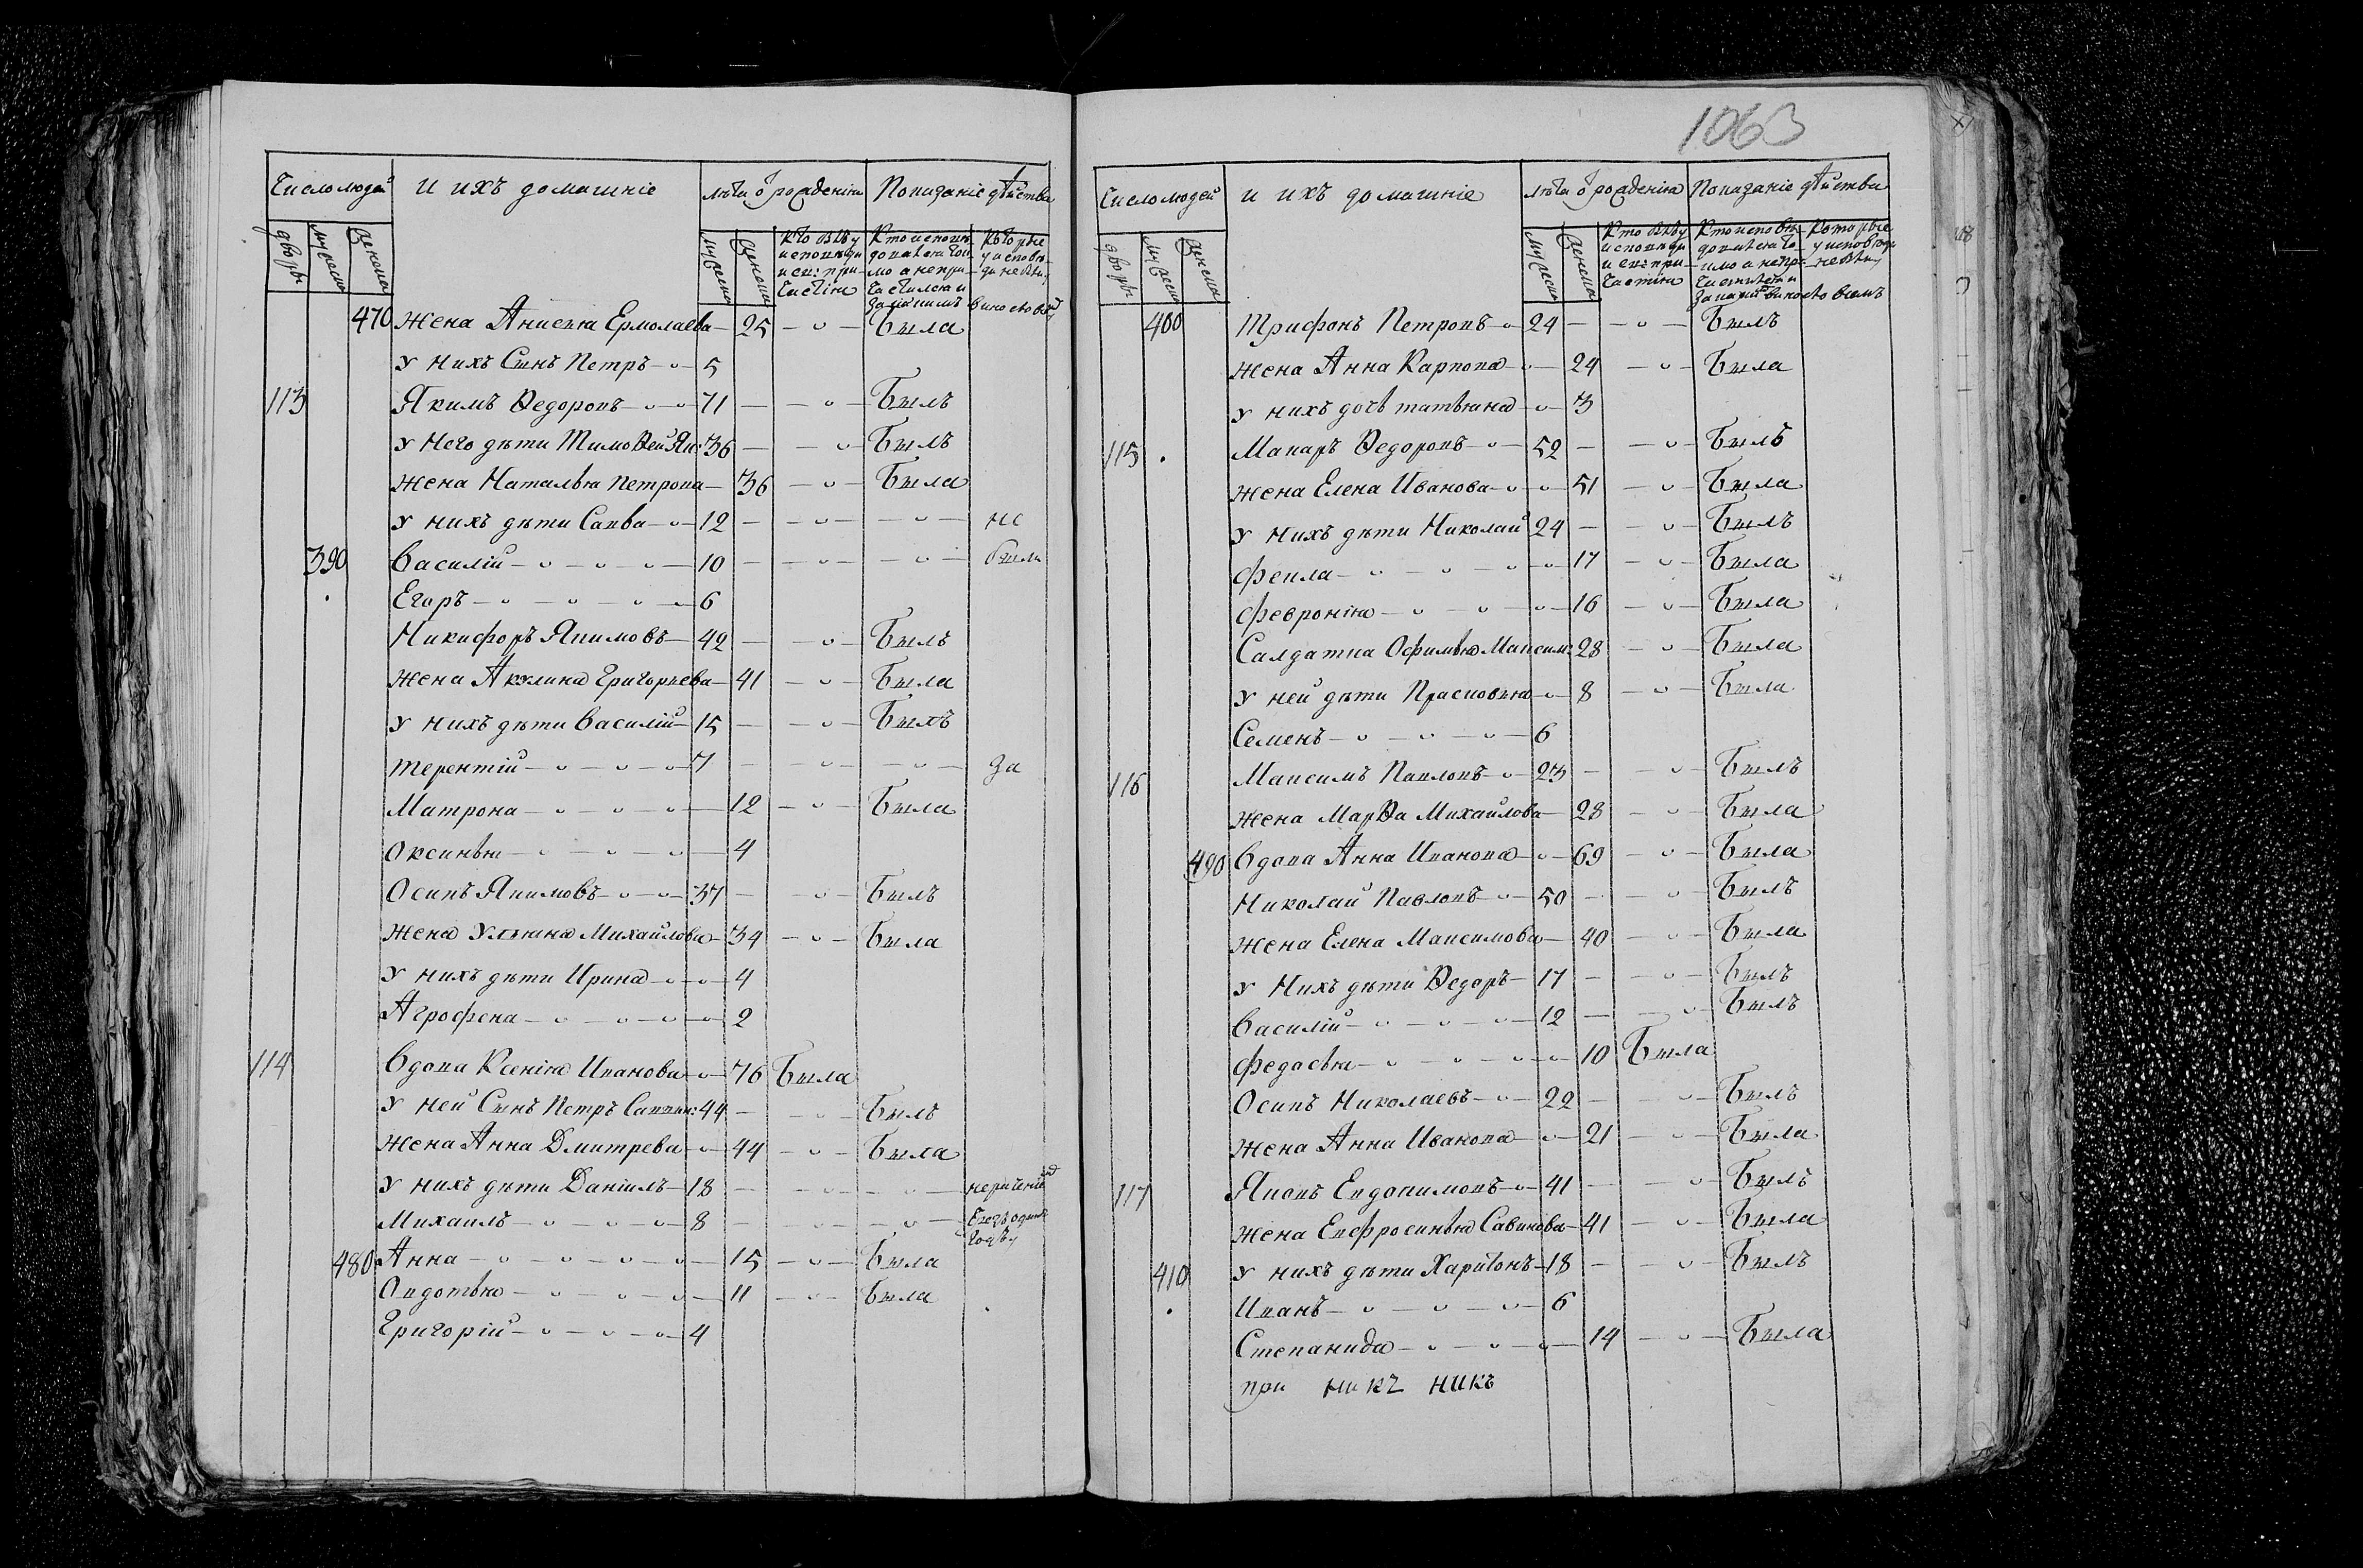 Число людей
И ихъ домашнiе
лѣта ѿ рожденiя
Показанiе дѣйства
дворы
мужеска
женска
мужеска
женска
Кто былъ у исповѣди и св: причастiя
Кто исповѣдовался токмо а не причастился и за какимъ винословiемъ
Которые у исповѣди не были
470 Жена Анисья Ермолаева 25 Была
У нихъ Сынъ Петръ 5
113 Якимъ Ѳедоровъ 71 Былъ
У Него дѣти Тимоѳей Як: 36 Былъ
Жена Наталья Петрова 36 Была
У нихъ дѣти Савва 12 не
390 Василiй 10 были
Егоръ 6
Никифоръ Якимовъ 42 Былъ
Жена Акулина Григорьева 41 Была
У нихъ дѣти Василiй 15 Былъ
Терентiй 7 за
Матрона 12 Была
Оксинья 4
Осипъ Якимовъ 37 Былъ
Жена Ульяна Михайлова 34 Была
У нихъ дѣти Ирина 4
Агрофена 2
114 Вдова Ксенiя Иванова 76 Была
У ней Сынъ Петръ Саввин: 44 Былъ
Жена Анна Дмитрева 44 Была
У нихъ дѣти Данiилъ 18
Михаилъ 8
480 Анна 15 Была
Овдотья 11 Была
Григорiй 4
1063
Число людей
и ихъ домашнiе
лѣта ѿ рожденiя
Показанiе дѣйства
дворы
мужеска
женска
мужеска
женска
Кто былъ у исповѣди и св: причастiя
Кто исповѣдовался токмо а не причастился и за какимъ винословiемъ
Которые у исповѣди не были
400 Трифонъ Петровъ 24 Былъ
Жена Анна Карпова 24 Была
У нихъ дочь татьяна 3
115 Макаръ Ѳедоровъ 52 Былъ
Жена Елена Иванова 51 Была
У Нихъ дѣти Николай 24 Былъ
Фекла 17 Была
Феврониiя 16 Была
Салдатка Офимья Максим: 28 Была
У ней дѣти Прасковья 8 Была
Семенъ 6
116 Максимъ Павловъ 23 Былъ
Жена Марѳа Михайлова 28 Была
490 Вдова Анна Иванова 69 Была
Николай Павловъ 50 Былъ
Жена Елена Максимова 40 Была
У Нихъ дѣти Ѳедоръ 17 Былъ
Василiй 12 Былъ
Федосья 10 Была
Осипъ Николаевъ 22 Былъ
Жена Анна Иванова 21 Была
117 Яковъ Евдокимовъ 41 Былъ
Жена Евфросинья Савинова 41 Была
410 У нихъ дѣти Харитонъ 18 Былъ
Иванъ 6
Степанида 14 Была
при